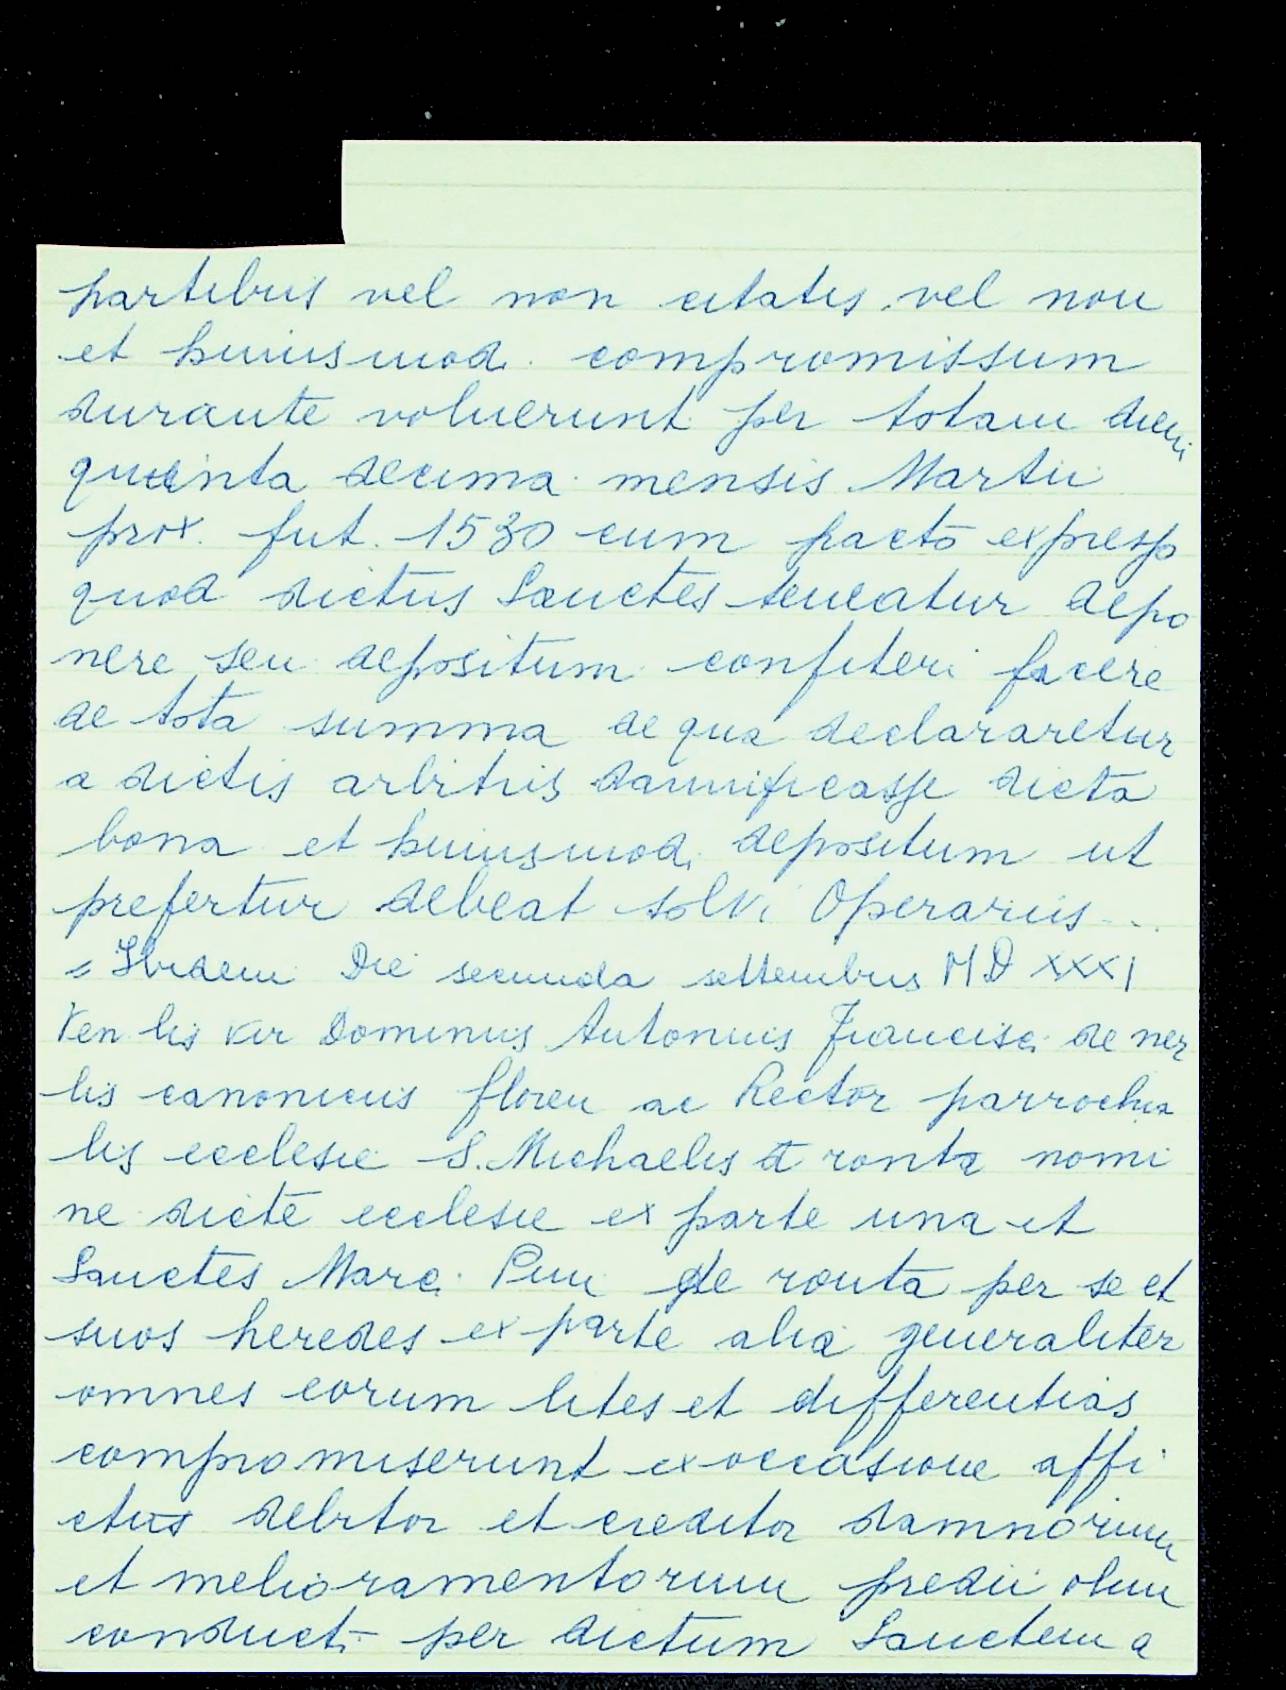 partibus vel non citatis vel non
et huiusmod. compromissum
durante voluerunt per totam diem
quinta decima mensis Martii
prox. fut. 1530 cum pacto expresso
quod dictus Sanctes teneatur depo
nere seu depositum confiteri facere
de tota summa de qua declararetur
a dictis arbitris damnificasse dicta
bona et huiusmodi depositum ut
prefertur debeat solvi Operarius...
Ibidem Die secunda settembris MDXXXI
Ven lis vir Dominus Antonius Francisci de ner
lis canonicus floren ac Rector parrochia
lis ecclesie S. Michaelis a ronta nomi
ne dicte ecclesie ex parte una et
Sanctes Marci Pini de ronta per se et
suos heredes ex parte alia generaliter
omnes eorum lites et differentias
compromiserunt ex occasione affi
ctus debitor et creditor damnorum
et melioramentorum predii olim
conducti per dictum Sanctem a